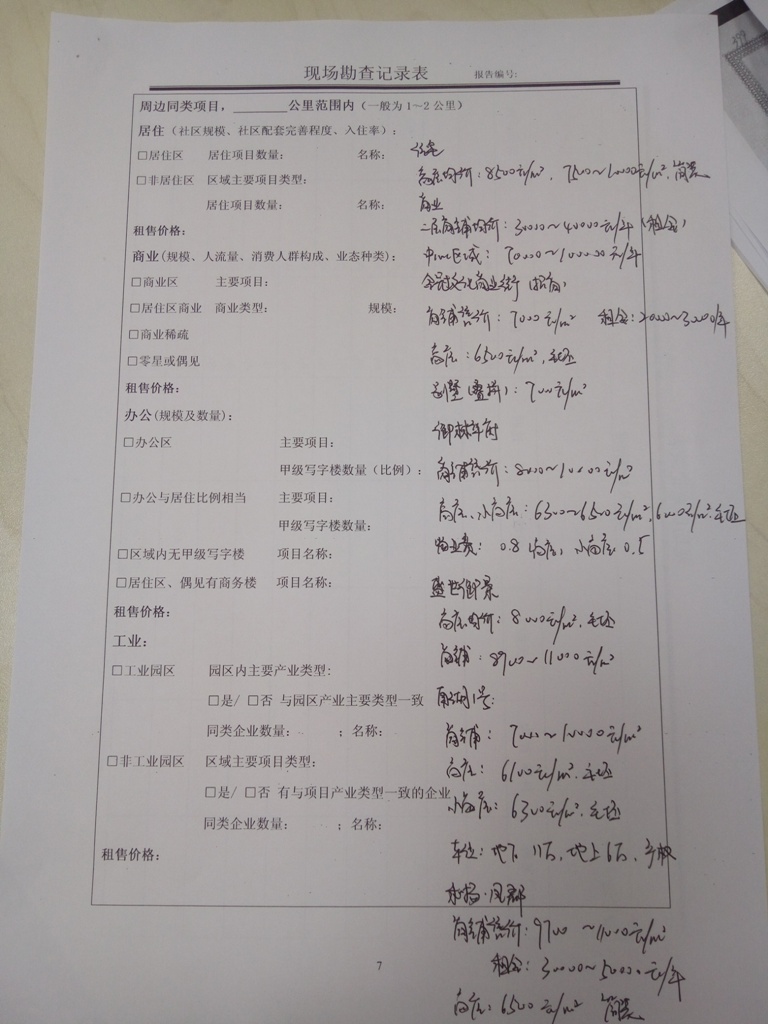 现场勘查记录表 报告编号:
周边同类项目，______公里范围内（一般为 1～2 公里）
居住（社区规模、社区配套完善程度、入住率）:
□居住区 居住项目数量: 名称: 住宅
□非居住区 区域主要项目类型: 高层均价: 8500元/m², 7500~10000元/m², 简装
居住项目数量: 名称: 商业
租售价格: 二层商铺均价: 30000~40000元/年 (租金)
商业(规模、人流量、消费人群构成、业态种类): 中心区域: 70000~100000元/年
□商业区 主要项目: 文化商业街
□居住区商业 商业类型: 规模: 商铺售价: 7000元/m² 租金: 20000~30000/年
□商业稀疏
高层: 6500元/m², 毛坯
□零星或偶见
租售价格: 别墅: 7000元/m²
办公(规模及数量):
□办公区 主要项目: 御林华府
甲级写字楼数量（比例）: 商铺售价: 8000~10000元/m²
□办公与居住比例相当 主要项目: 高层、小高层: 6300~6500元/m², 6000元/m² 毛坯
甲级写字楼数量:
□区域内无甲级写字楼 项目名称: 物业费: 0.8 高层, 小高层 0.5
□居住区、偶见有商务楼 项目名称: 盛世御景
租售价格: 高层均价: 8000元/m², 毛坯
工业:
□工业园区 园区内主要产业类型: 商铺: 8900~11000元/m²
□是/ □否 与园区产业主要类型一致 1号:
同类企业数量: ；名称: 商铺: 7000~10000元/m²
□非工业园区 区域主要项目类型: 高层: 6100元/m², 毛坯
□是/ □否 有与项目产业类型一致的企业 小高层: 6300元/m², 毛坯
同类企业数量: ；名称:
租售价格: 车位: 地下 11万, 地上 6万, 产权
商铺售价: 9700~11000元/m²
租金: 30000~50000元/年
7
高层: 6500元/m² 简装